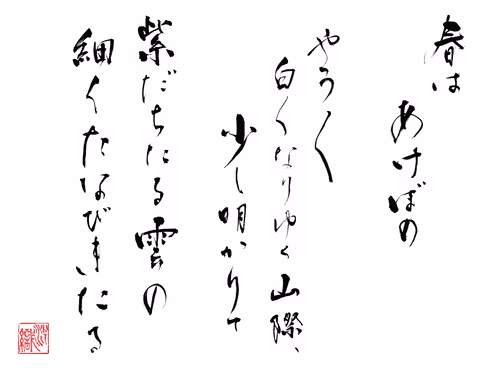 春は
あけぼの
やう〳〵
白くなりゆく山際、
少し明かりて
紫だちたる雲の
細くたなびきたる。